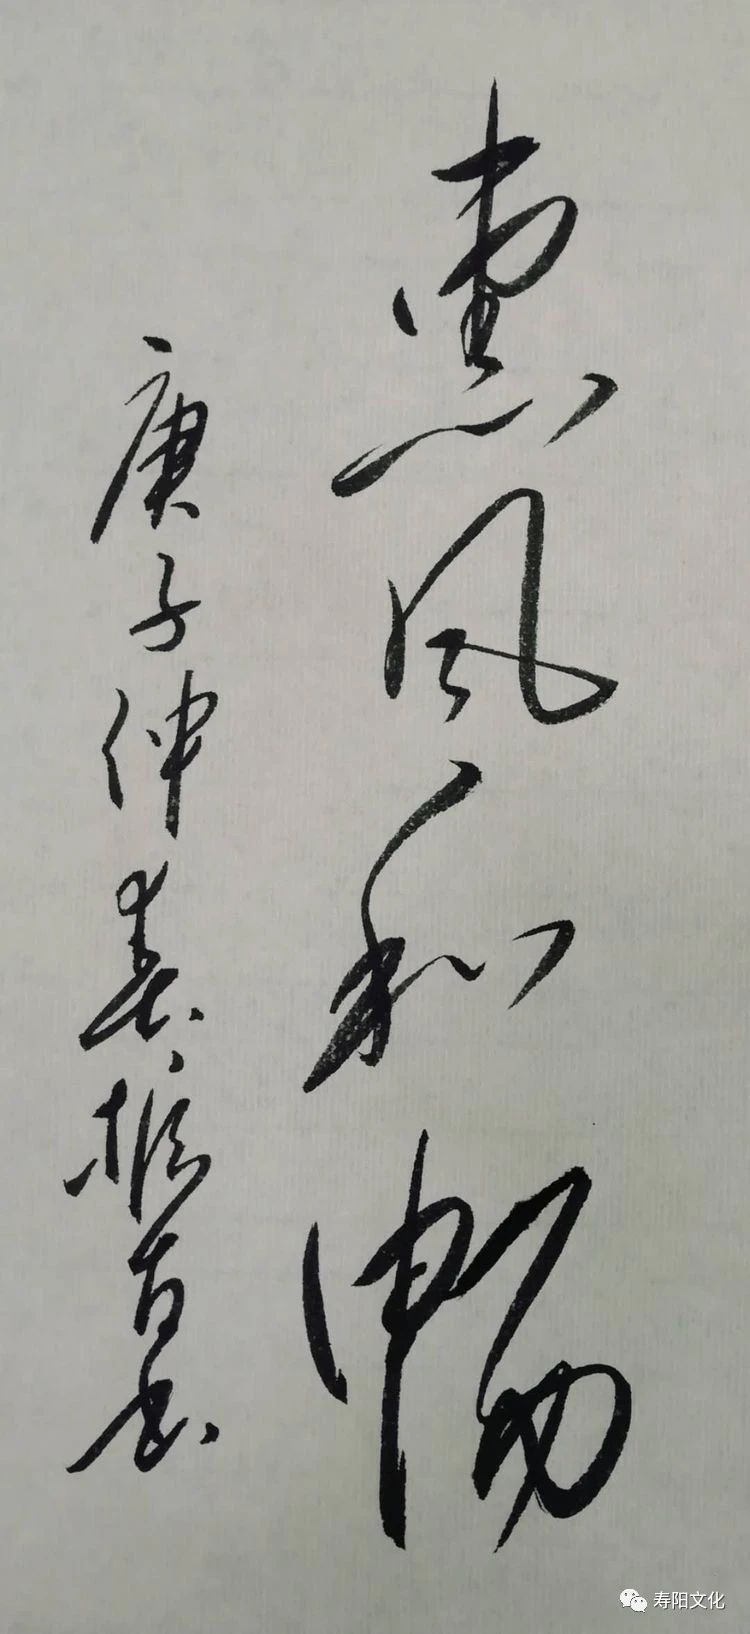 惠风和畅
庚子仲春振古书
寿阳文化